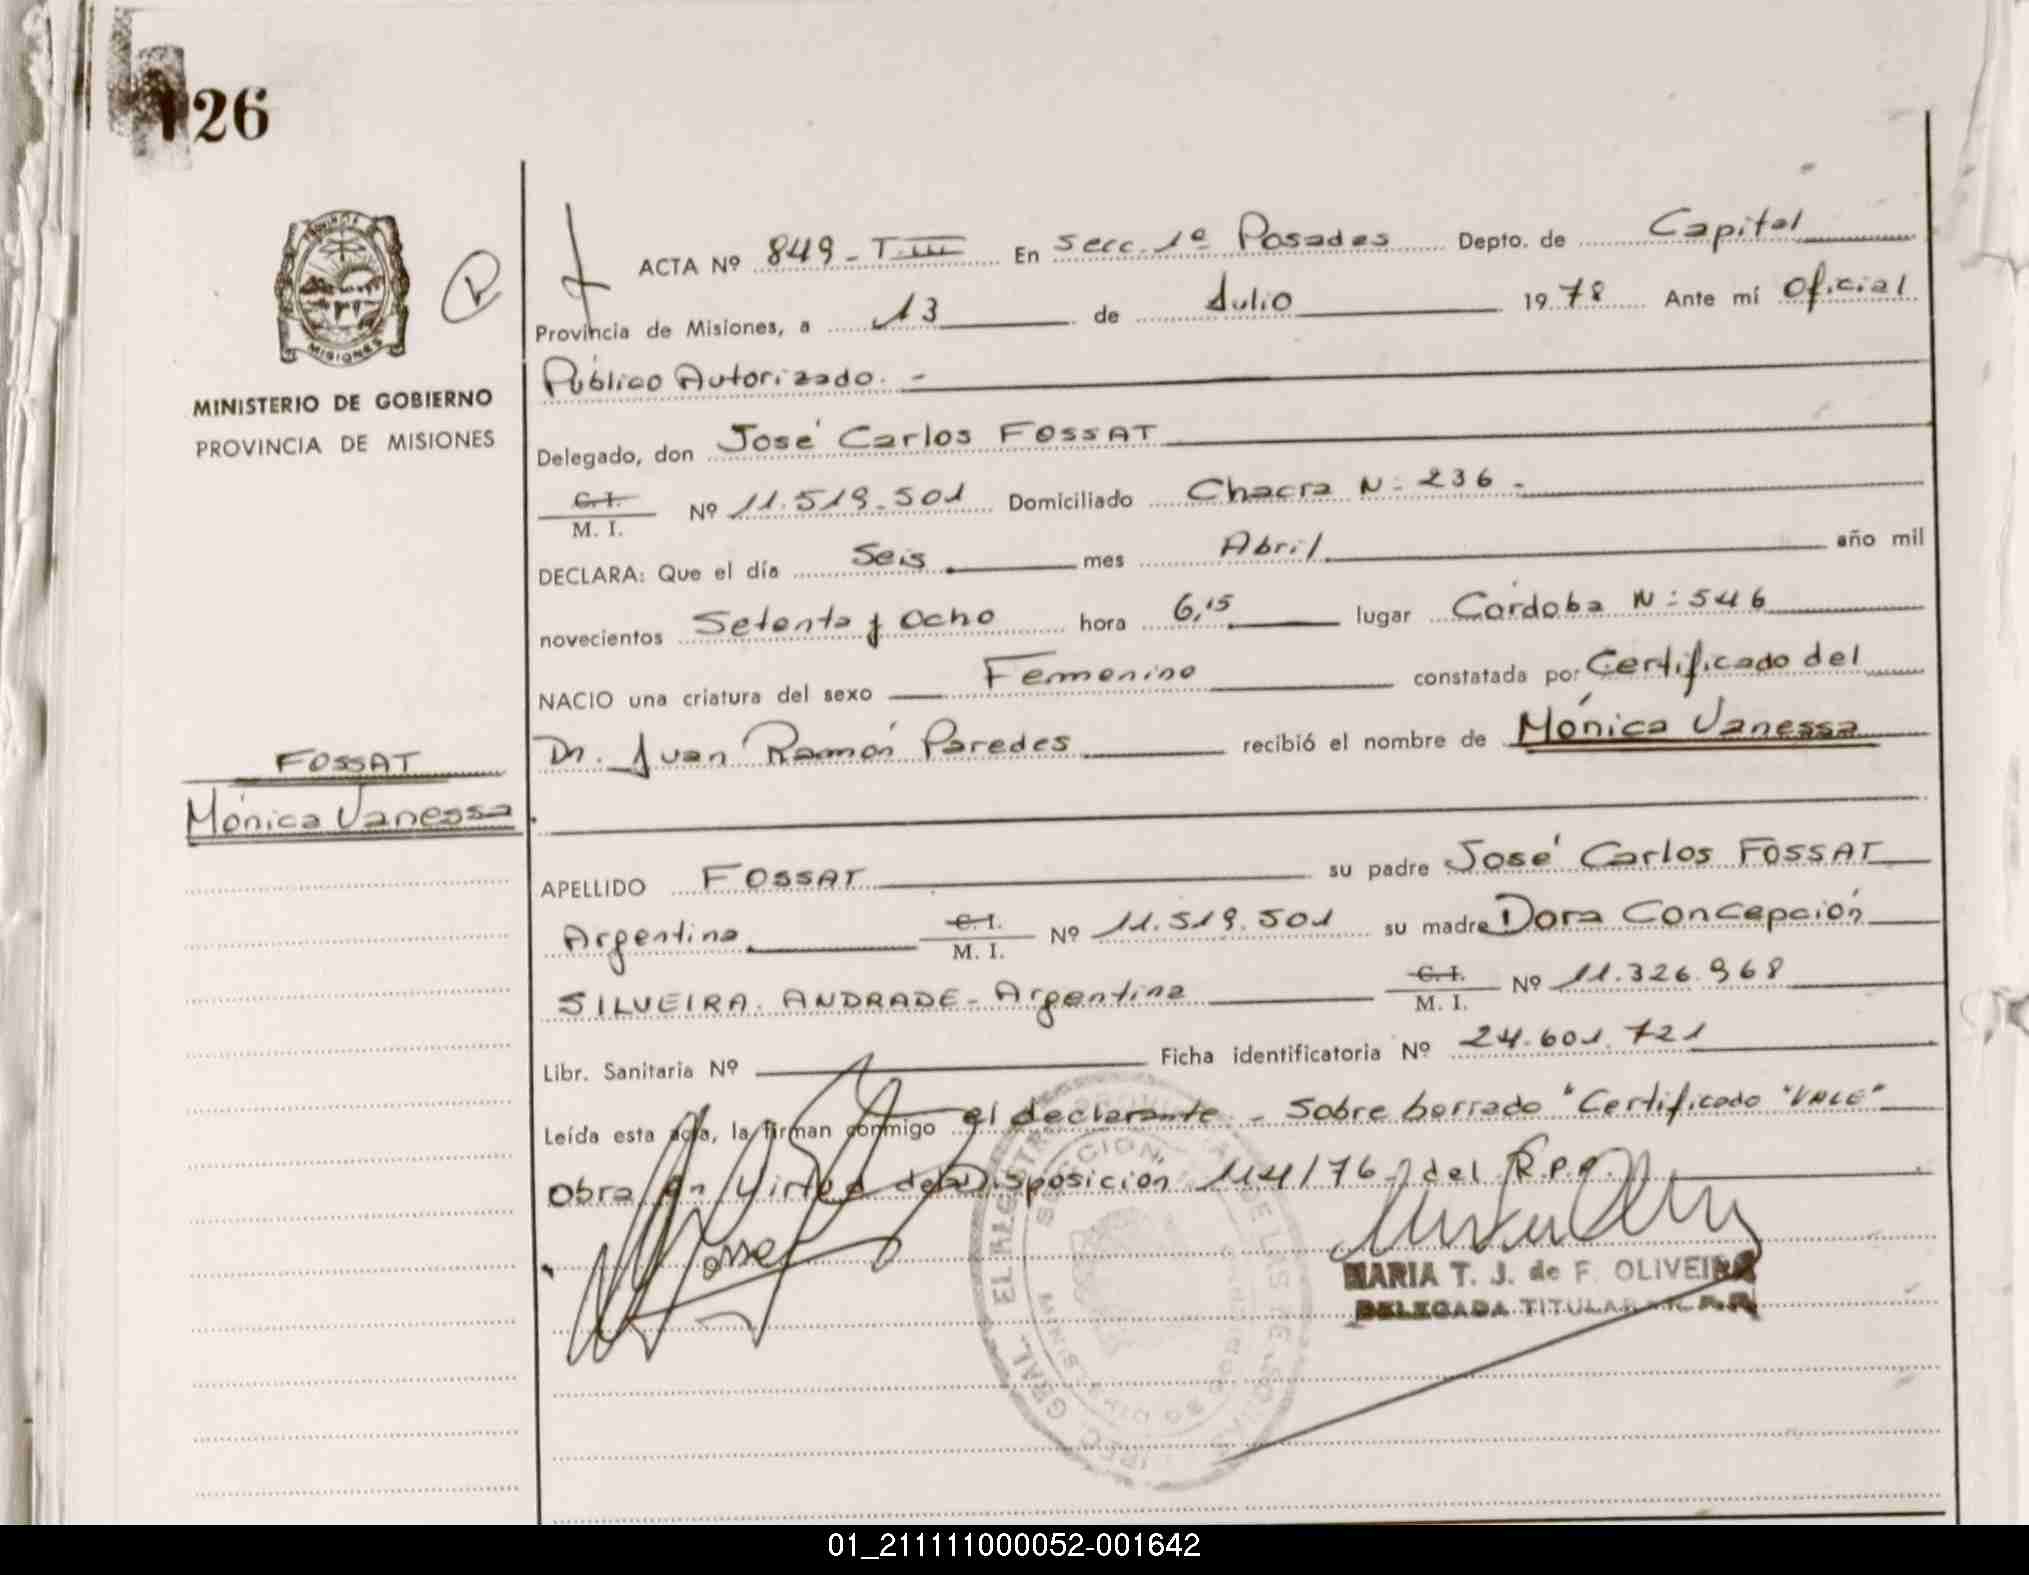 126
MISIONES
MINISTERIO DE GOBIERNO
PROVINCIA DE MISIONES
R
FOSSAT
Mónica Vanessa
ACTA Nº 849 - T. III En Secc. 1ª Posadas Depto. de Capital
Provincia de Misiones, a 13 de Julio 1978 Ante mí Oficial
Público Autorizado. -
Delegado, don José Carlos FOSSAT
C. I. / M. I. Nº 11.519.501 Domiciliado Chacra N: 236 -
DECLARA: Que el día Seis mes Abril año mil
novecientos Setenta y Ocho hora 6,15 lugar Córdoba N: 546
NACIO una criatura del sexo Femenino constatada por Certificado del
Dr. Juan Ramón Paredes recibió el nombre de Mónica Vanessa
APELLIDO FOSSAT su padre José Carlos FOSSAT
Argentina C. I. / M. I. Nº 11.519.501 su madre Dora Concepción
SILVEIRA ANDRADE - Argentina C. I. / M. I. Nº 11.326.968
Libr. Sanitaria Nº Ficha identificatoria Nº 24.601.721
Leída esta acta, la firman conmigo el declarante - Sobre borrado "Certificado "VALE"
Obra en virtud de Disposición 114/76 del R.P.P.
MARIA T. J. de F. OLIVEIRA
DELEGADA TITULAR R.P.P.
01_211111000052-001642